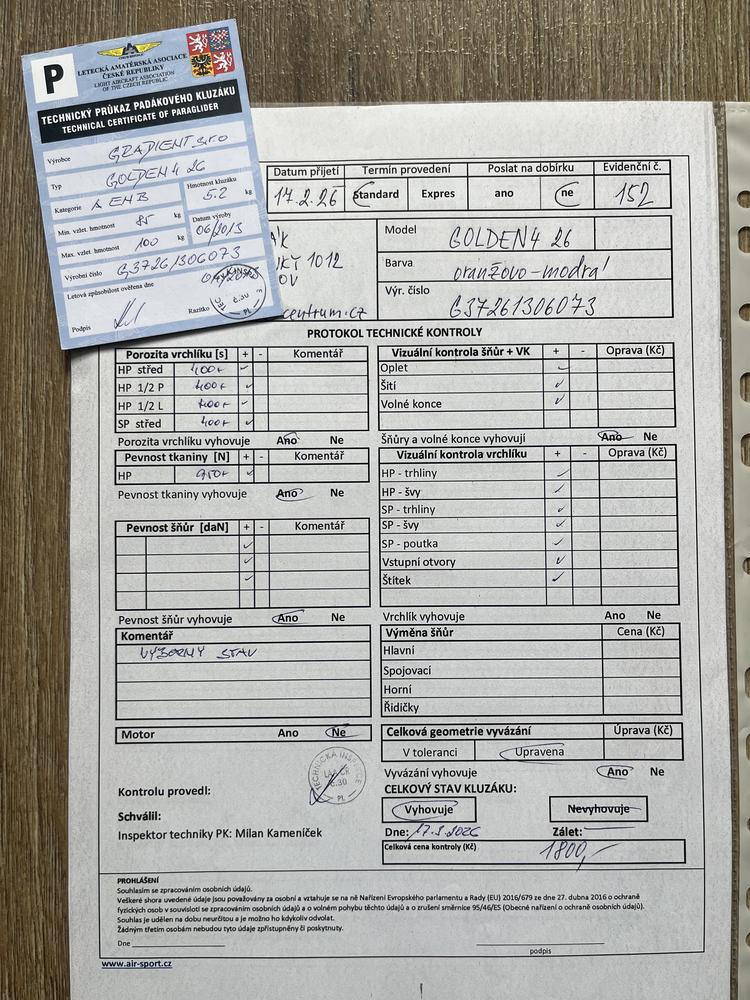 P
LETECKÁ AMATÉRSKÁ ASOCIACE
ČESKÉ REPUBLIKY
LIGHT AIRCRAFT ASSOCIATION
OF THE CZECH REPUBLIC
TECHNICKÝ PRŮKAZ PADÁKOVÉHO KLUZÁKU
TECHNICAL CERTIFICATE OF PARAGLIDER
Výrobce GRADIENT s.r.o
Typ GOLDEN 4 26
Kategorie A EN B Hmotnost kluzáku 5.2 kg
Min. vzlet. hmotnost 85 kg Datum výroby
Max. vzlet. hmotnost 100 kg 06/2013
Výrobní číslo G37261306073
Letová způsobilost ověřena dne
Podpis Razítko
Datum přijetí Termín provedení Poslat na dobírku Evidenční č.
17.2.26 Standard Expres ano ne 152
Model GOLDEN4 26
1012
Barva oranžovo-modrá
OV
Výr. číslo G37261306073
centrum.cz
PROTOKOL TECHNICKÉ KONTROLY
Porozita vrchlíku [s] + - Komentář
HP střed 400+ ✓
HP 1/2 P 400+ ✓
HP 1/2 L 400+ ✓
SP střed 400+ ✓
Porozita vrchlíku vyhovuje Ano Ne
Pevnost tkaniny [N] + - Komentář
HP 950+ ✓
Pevnost tkaniny vyhovuje Ano Ne
Pevnost šňůr [daN] + - Komentář
✓
✓
✓
Pevnost šňůr vyhovuje Ano Ne
Komentář
VÝBORNÝ STAV
Motor Ano Ne
Vizuální kontrola šňůr + VK + - Oprava (Kč)
Oplet ✓
Šití ✓
Volné konce ✓
Šňůry a volné konce vyhovují Ano Ne
Vizuální kontrola vrchlíku + - Oprava (Kč)
HP - trhliny ✓
HP - švy ✓
SP - trhliny ✓
SP - švy ✓
SP - poutka ✓
Vstupní otvory ✓
Štítek ✓
Vrchlík vyhovuje Ano Ne
Výměna šňůr Cena (Kč)
Hlavní
Spojovací
Horní
Řidičky
Celková geometrie vyvázání Úprava (Kč)
V toleranci Upravena
Vyvázání vyhovuje Ano Ne
CELKOVÝ STAV KLUZÁKU:
Vyhovuje Nevyhovuje
Dne: 17.3.2026 Zálet:
Celková cena kontroly (Kč) 1800,-
Kontrolu provedl:
TECHNICKÁ INSPEKCE
LAA ČR
6.30
PL
Schválil:
Inspektor techniky PK: Milan Kameníček
PROHLÁŠENÍ
Souhlasím se zpracováním osobních údajů.
Veškeré shora uvedené údaje jsou považovány za osobní a vztahuje se na ně Nařízení Evropského parlamentu a Rady (EU) 2016/679 ze dne 27. dubna 2016 o ochraně
fyzických osob v souvislosti se zpracováním osobních údajů a o volném pohybu těchto údajů a o zrušení směrnice 95/46/ES (Obecné nařízení o ochraně osobních údajů).
Souhlas je udělen na dobu neurčitou a je možno ho kdykoliv odvolat.
Žádným třetím osobám nebudou tyto údaje zpřístupněny či poskytnuty.
Dne
podpis
www.air-sport.cz